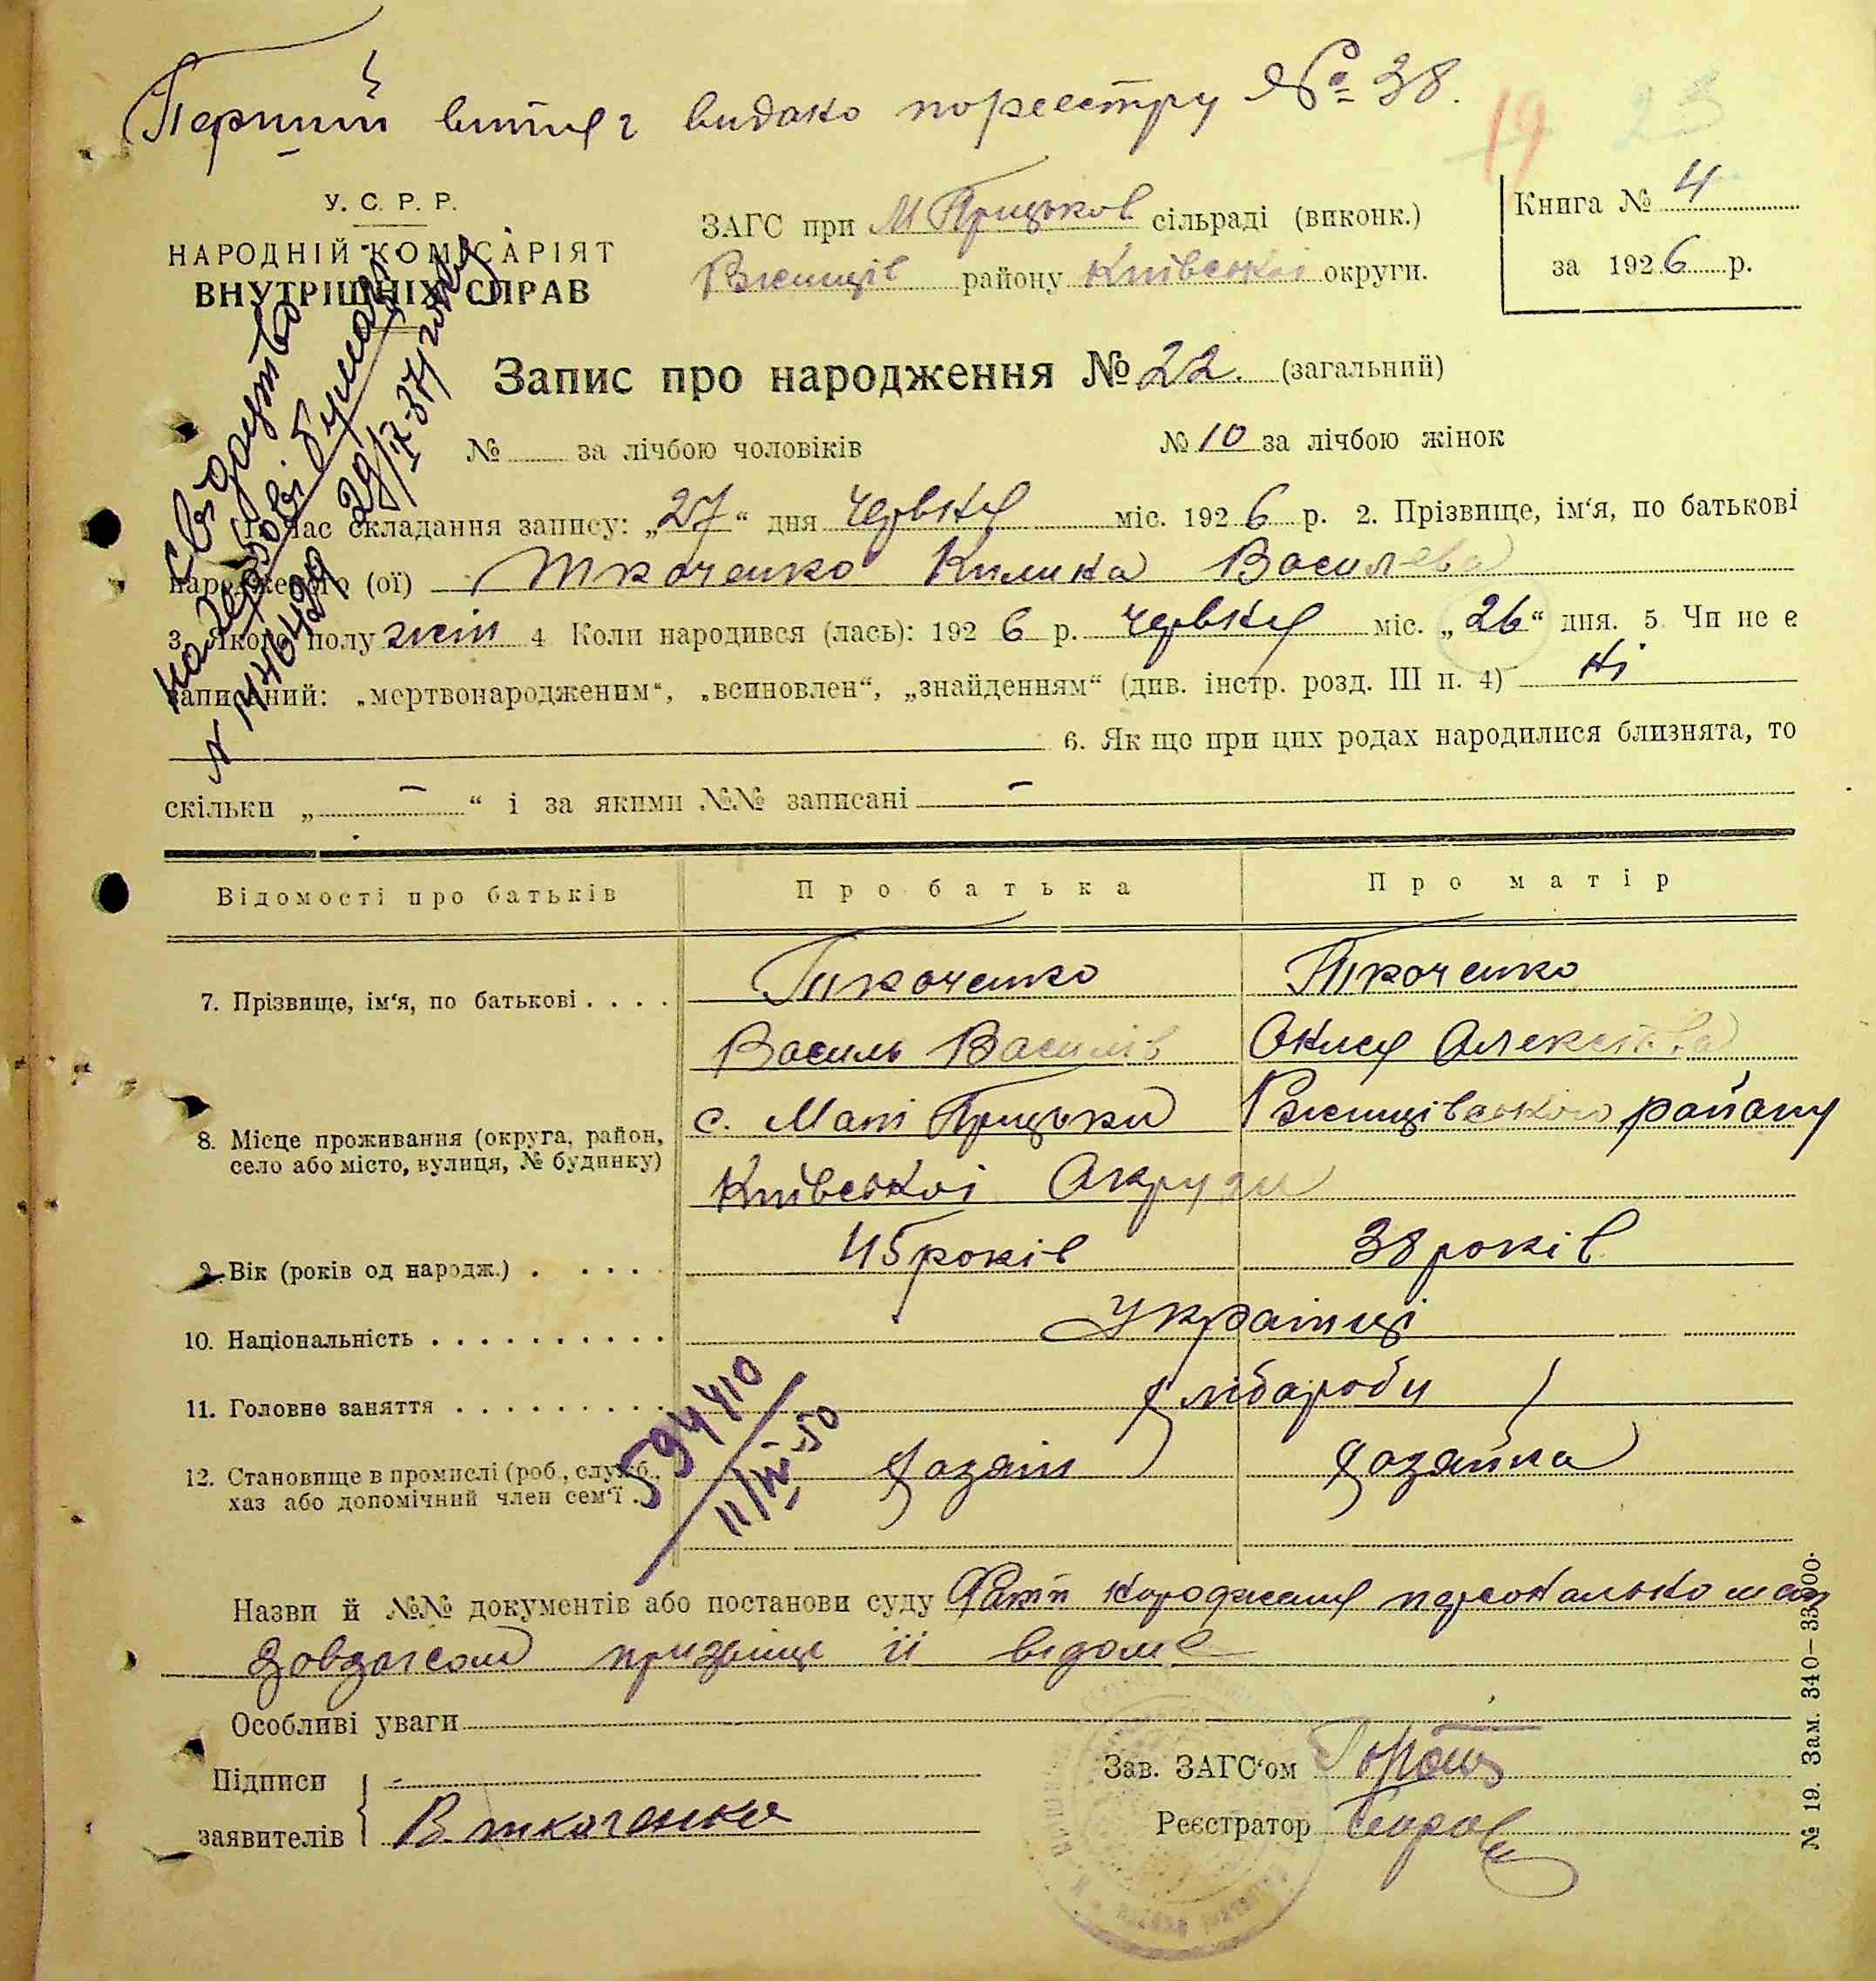 Перший витяг видано пореестру № 38.
19 23
У. С. Р. Р.
НАРОДНІЙ КОМІСАРІЯТ
ВНУТРІШНІХ СПРАВ
ЗАГС при М Прицьков сільраді (виконк.)
Ржищів району Київської округи.
Книга № 4
за 1926 р.
Запис про народження № 22. (загальний)
№ за лічбою чоловіків № 10 за лічбою жінок
час складання запису: „27“ дня червня міс. 1926 р. 2. Прізвище, ім'я, по батькові
народженого (ої) Ткаченко Килина Василева
3. Якого полу жін 4 Коли народився (лась): 1926 р. червня міс. „26“ дня. 5. Чи не є
записаний: „мертвонародженим“, „всиновлен“, „знайденням“ (див. інстр. розд. III п. 4) Ні
6. Як що при цих родах народилися близнята, то
скільки „ – “ і за якими №№ записані –
свідоцтво
на гербові бумазі
29/IX-37 року
Відомості про батьків Про батька Про матір
7. Прізвище, ім'я, по батькові . . . . Ткаченко Ткаченко
Василь Василів
8. Місце проживання (округа, район, село або місто, вулиця, № будинку) с. Малі Прицьки Ржищівського району
Київської Округи
9. Вік (років од народж.) . . . . . 45 років 38 років
10. Національність . . . . . . . . . . Українці
11. Головне заняття . . . . . . . . . Хлібароби
12. Становище в промислі (роб., служб., хаз або допомічний член сем'ї . Хазяїн Хазяйка
594410
11/IV-50
Назви й №№ документів або постанови суду Факт народження персонально
Завзагсом призвіще її відоме
Особливі уваги
Підписи
заявителів В. ткаченко
Зав. ЗАГС'ом
Реєстратор
№ 19. Зам. 340–33000.